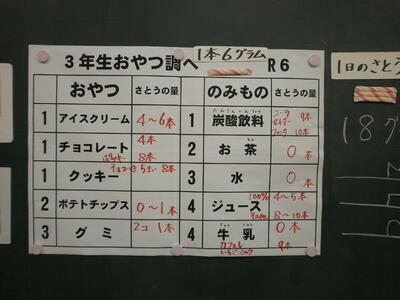 3年生おやつ調べ
1本6グラム
R6
おやつ さとうの量
1 アイスクリーム 4～6本
1 チョコレート 4本
ポッキー 8本
1 クッキー 8本
2 ポテトチップス 0～1本
3 グミ 2コ 1本
のみもの さとうの量
1 炭酸飲料 コーラ 9本
たんさんいんりょう
サイダー
ファンタ 10本
2 お茶 0本
3 水 0本
4 ジュース 100% 4～5本
8～10本
4 牛乳 0本
ぎゅうにゅう
カフェオレ
いちごミルク 9本
1日のさとう
18グ